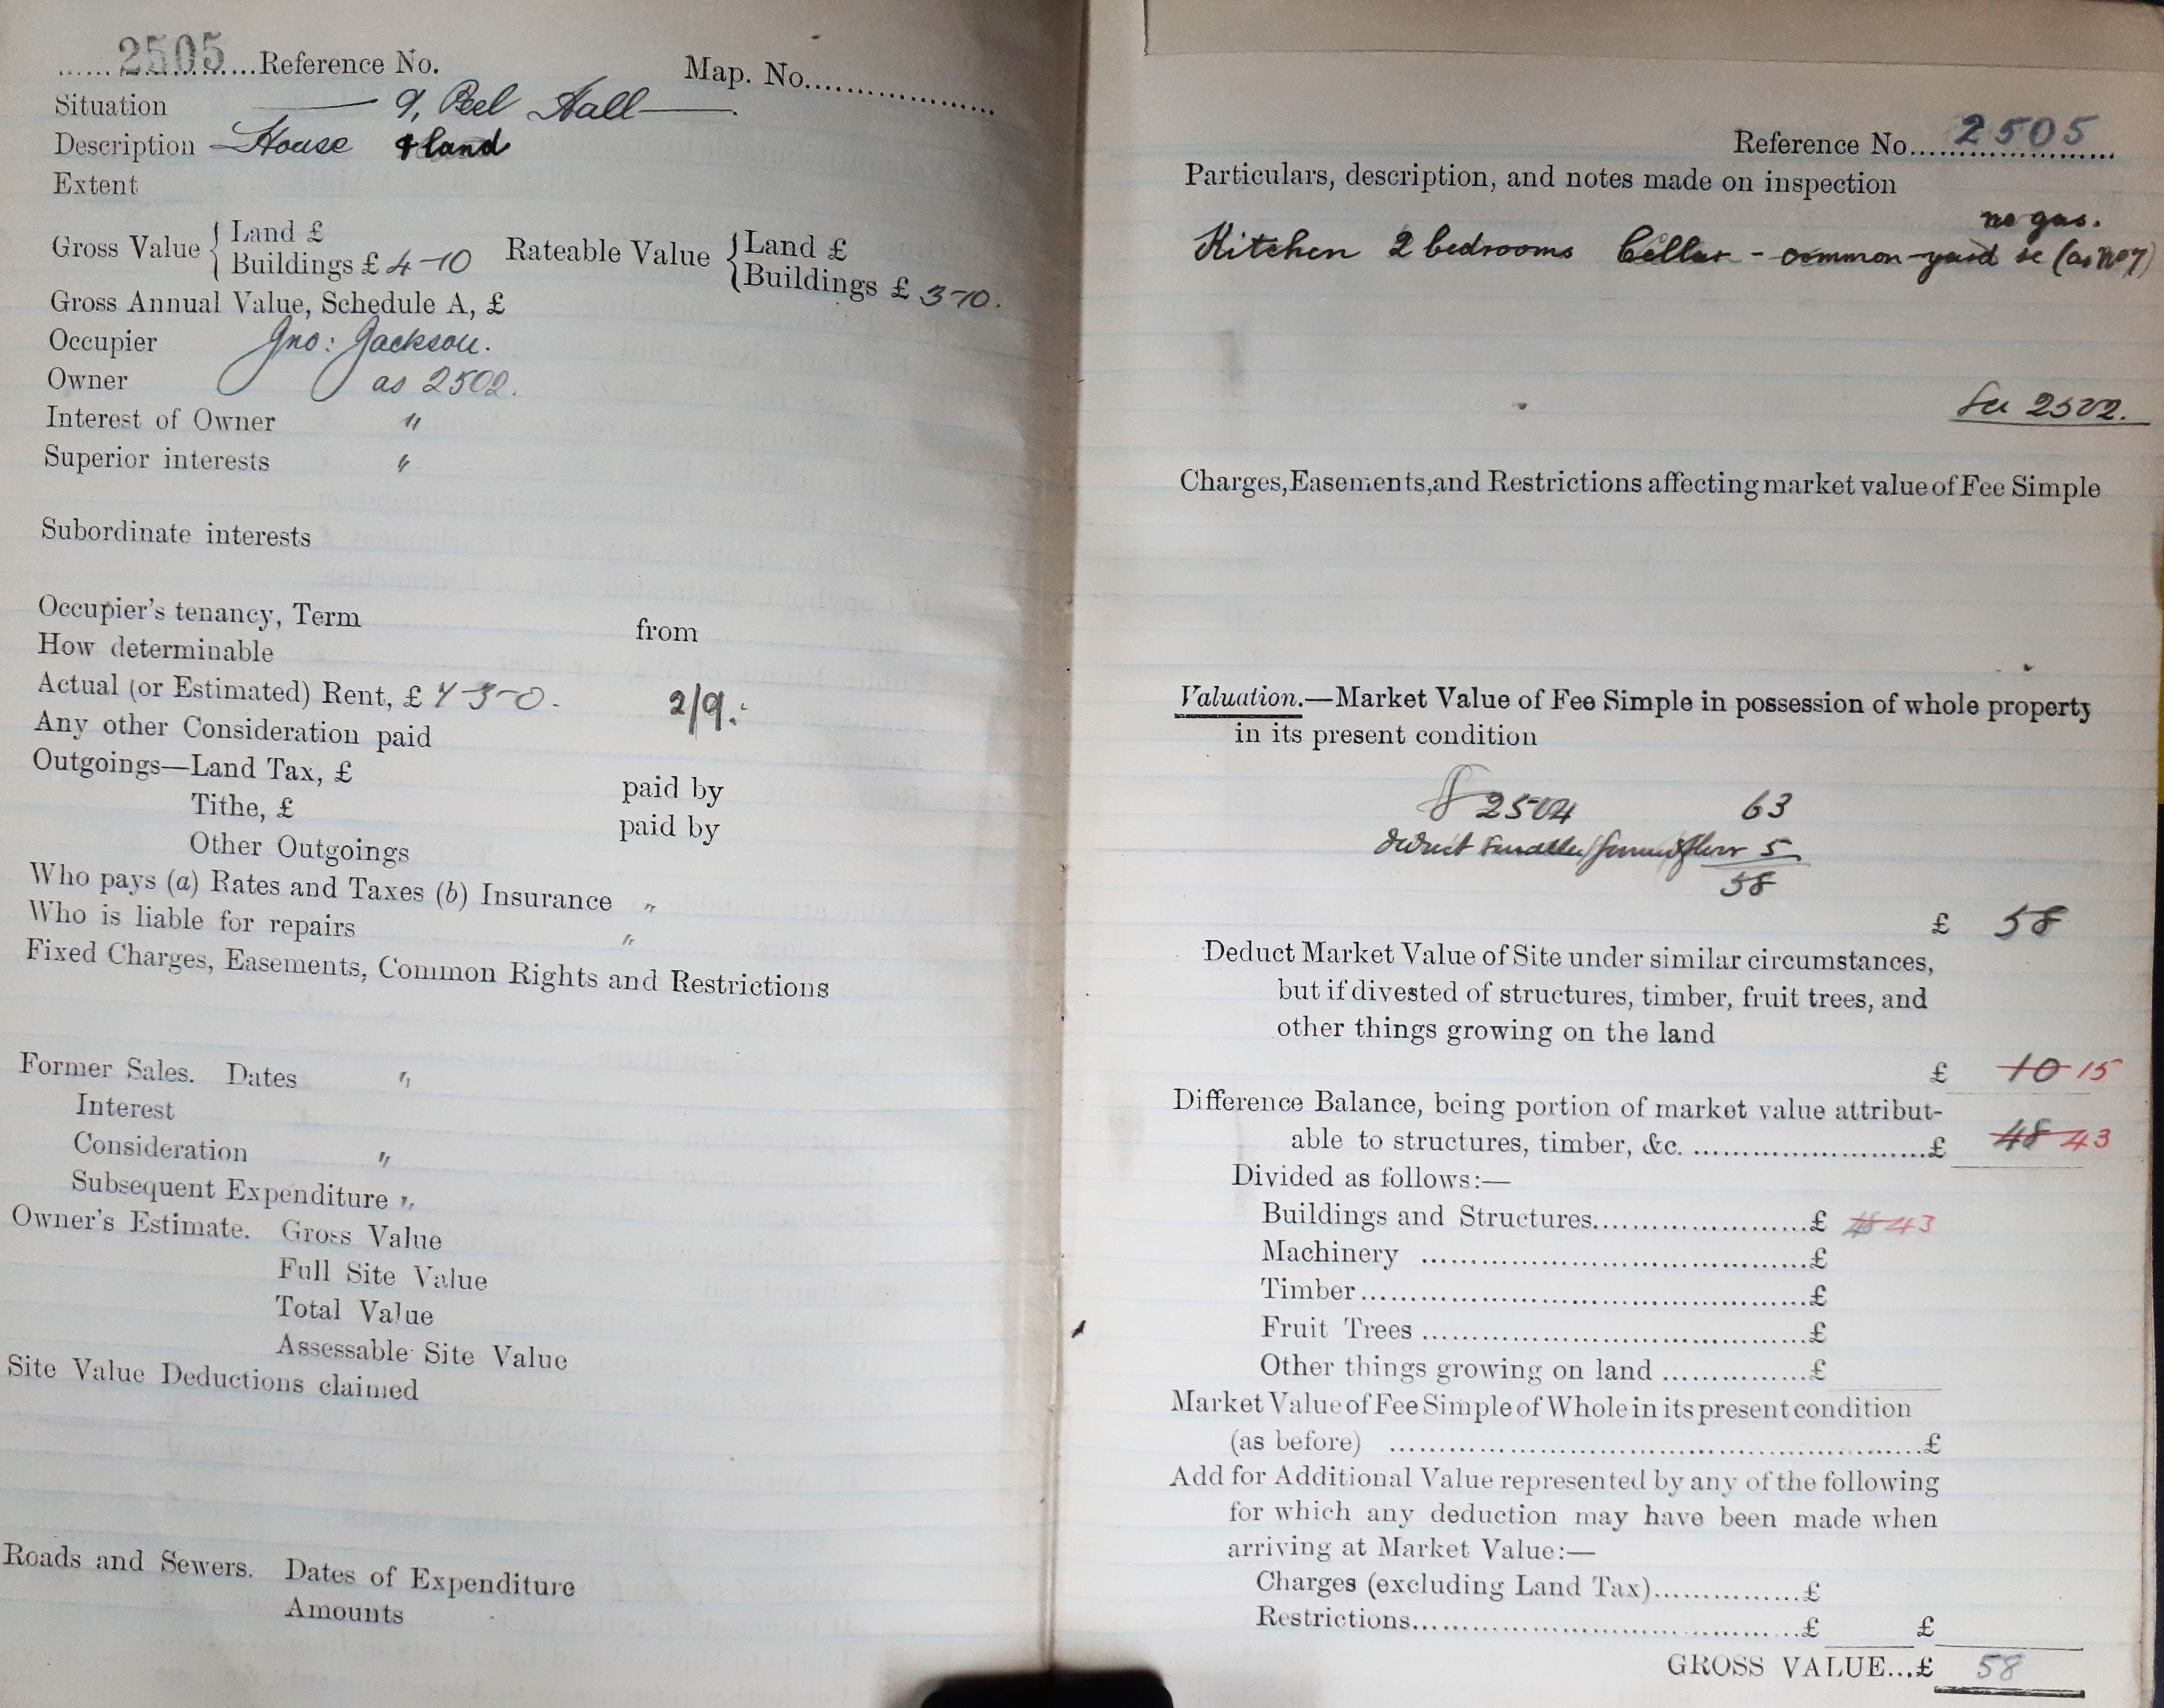 2505 Reference No. Map. No.
Situation 9, Peel Hall
Description House & land
Extent
Gross Value { Land £
Buildings £ 4-10 Rateable Value { Land £
Buildings £ 3-10.
Gross Annual Value, Schedule A, £
Occupier Jno: Jackson.
Owner as 2502.
Interest of Owner "
Superior interests "
Subordinate interests
Occupier's tenancy, Term from
How determinable
Actual (or Estimated) Rent, £ 7-3-0. 2/9.
Any other Consideration paid
Outgoings—Land Tax, £ paid by
Tithe, £ paid by
Other Outgoings
Who pays (a) Rates and Taxes (b) Insurance "
Who is liable for repairs "
Fixed Charges, Easements, Common Rights and Restrictions
Former Sales. Dates "
Interest
Consideration "
Subsequent Expenditure "
Owner's Estimate. Gross Value
Full Site Value
Total Value
Assessable Site Value
Site Value Deductions claimed
Roads and Sewers. Dates of Expenditure
Amounts
Reference No. 2505
Particulars, description, and notes made on inspection
no gas.
Kitchen 2 bedrooms Cellar - common yard &c (as No 7)
See 2502.
Charges, Easements, and Restrictions affecting market value of Fee Simple
Valuation.—Market Value of Fee Simple in possession of whole property
in its present condition
2504 63
deduct smaller 5
58
£ 58
Deduct Market Value of Site under similar circumstances,
but if divested of structures, timber, fruit trees, and
other things growing on the land
£ 10 15
Difference Balance, being portion of market value attribut-
able to structures, timber, &c. £ 48 43
Divided as follows:—
Buildings and Structures £ 48 43
Machinery £
Timber £
Fruit Trees £
Other things growing on land £
Market Value of Fee Simple of Whole in its present condition
(as before) £
Add for Additional Value represented by any of the following
for which any deduction may have been made when
arriving at Market Value:—
Charges (excluding Land Tax) £
Restrictions £ £
GROSS VALUE...£ 58